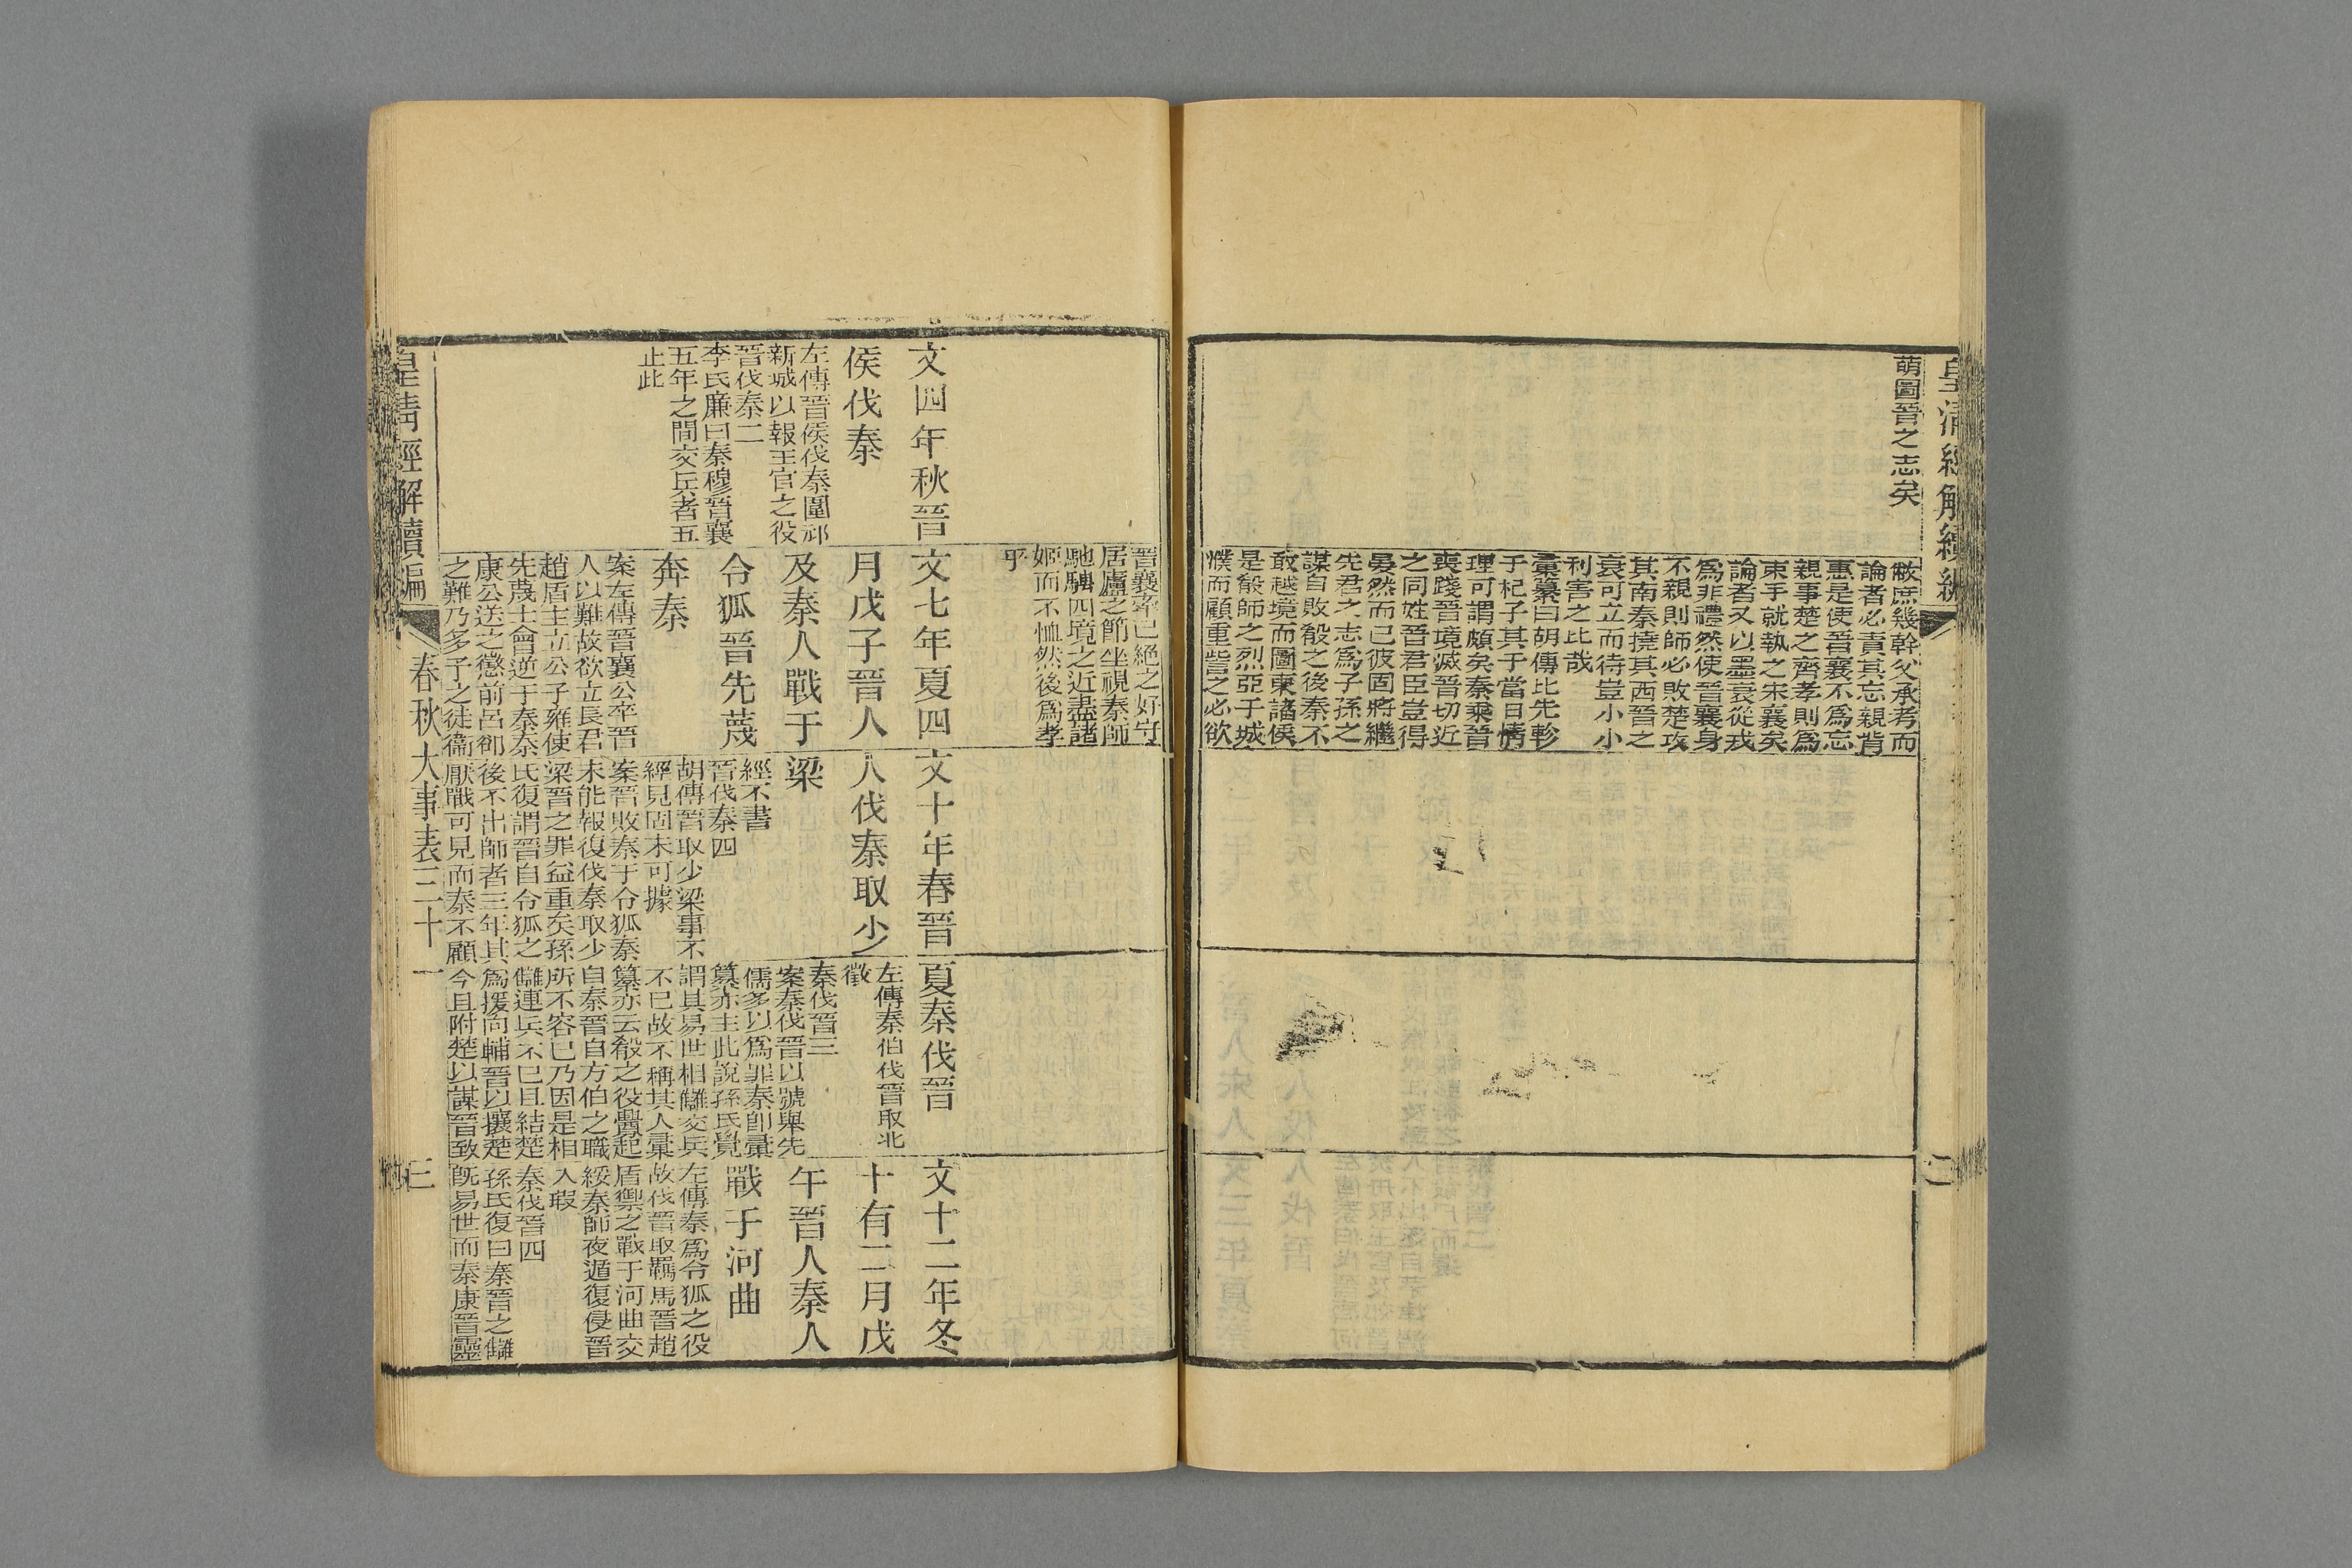 皇清經解續編
二
萌圖晉之志矣
敝庶幾幹父承考而
論者必責其忘親背
惠是使晉襄不爲忘
親事楚之齊孝則爲
束手就執之宋襄矣
論者又以墨衰從戎
爲非禮然使晉襄身
不親則師必敗楚攻
其南秦撓其西晉之
衰可立而待豈小小
利害之比哉
彙纂曰胡傳比先軫
于杞子其于當日情
理可謂頗矣秦乘晉
喪踐晉境滅晉切近
之同姓晉君臣豈得
晏然而已彼固將繼
先君之志爲子孫之
謀自敗殽之後秦不
敢越境而圖東諸侯
是殽師之烈亞于城
濮而顧重訾之必欲
文四年秋晉
侯伐秦
左傳晉侯伐秦圍邧
新城以報王官之役
晉伐秦二
李氏廉曰秦穆晉襄
五年之間交兵者五
止此
晉襄率已絕之好守
居廬之節坐視秦師
馳騁四境之近盡諸
姬而不恤然後爲孝
乎
文七年夏四
月戊子晉人
及秦人戰于
令狐晉先蔑
奔秦
案左傳晉襄公卒晉
人以難故欲立長君
趙盾主立公子雍使
先蔑士會逆于秦秦
康公送之懲前呂郤
之難乃多予之徒衞
文十年春晉
人伐秦取少
梁
經不書
晉伐秦四
胡傳晉取少梁事不
經見固未可據
案晉敗秦于令狐秦
未能報復伐秦取少
梁晉之罪益重矣孫
氏復謂晉自令狐之
後不出師者三年其
厭戰可見而秦不顧
夏秦伐晉
左傳秦伯伐晉取北
徵
秦伐晉三
案秦伐晉以號舉先
儒多以爲罪秦卽彙
纂亦主此說孫氏覺
謂其易世相讎交兵
不已故不稱其人彙
纂亦云殽之役釁起
自秦晉自方伯之職
所不容已乃因是相
讎連兵不已且結楚
爲援向輔晉以攘楚
今且附楚以謀晉致
文十二年冬
十有二月戊
午晉人秦人
戰于河曲
左傳秦爲令狐之役
故伐晉取羈馬晉趙
盾禦之戰于河曲交
綏秦師夜遁復侵晉
入瑕
秦伐晉四
孫氏復曰秦晉之讎
旣易世而秦康晉靈
皇清經解續編
春秋大事表三十一
三